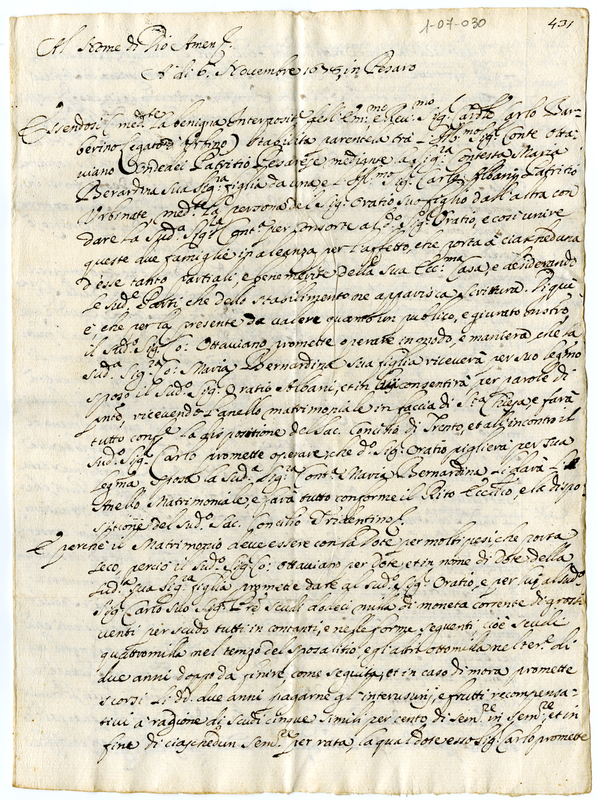 1-07-030
431
Al Nome di Dio Amen
A' di 6 Novembre in Pesaro
Essendosi med.te la benigna interposit.e dell' Em.mo e Rev.mo Sig. Card. Carlo Bar-
berino stabilita parentela trà Ill.mo Sig. Conte Otta-
viano Patritio Pesarese mediante la Sig.ra Contessa Maria
Berardina sua Sig.ra figlia da una e l'Ill.mo Sig. Carlo Albani Patritio
Urbinate, med.te la persona del Sig. Oratio suo figlio dall'altra con
dare la sud.a Sig.ra Cont.a per consorte al d.o Sig. Oratio, e così unire
queste due famiglie in per l'affetto, che porta à ciascheduna
d'esse tanto partiali, e benemerite della sua Ecc.ma Casa, e desiderando
le sud.e Parti, che dello stabilimento ne apparisca scrittura. Di quì
è che per la presente da valere quanto un publico, e giurato Instro.
il sud.o Sig. Co: Ottaviano promette operare in modo, e maniera che la
sud.a Sig.ra Co: Maria Bernardina sua figlia riceverà per suo legmo
sposo il sud.o Sig. Oratio Albani, et in consentirà per parole di
pnte, ricevendo l'anello matrimoniale in faccia di S.ta Chiesa, e farà
tutto conf.e la dispositione del Sac. Concilio di Trento, et all'incontro il
Sud.o Sig. Carlo promette operare, che d.o Sig. Oratio piglierà per sua
legma sposa la sud.a Sig.ra Cont.a Maria Bernardina li darà
Anello Matrimoniale, e farà tutto conforme il Rito Eccl.co, e la dispo-
sitione del sud.o Sac. Concilio Tridentino
E perche il Matrimonio deve essere con la Dote per molti pesi che porta
seco, perciò il sud.o Sig. Co: Ottaviano per Dote et in nome di Dote della
sud.a sua Sig.ra figlia promette dare al sud.o Sig. Oratio, e per lui al sud.o
Sig. Carlo suo Sig. P.re scudi dodeci mila di moneta corrente di grossi
venti per scudo tutti in contanti, e nelle forme seguenti cioè scudi
quattromilla nel tempo del sposalitio e gl'altri ottomilla nel ter.e di
due anni doppo da finire come seguita, et in caso di mora promette
scorsi li d.i due anni pagarne gl'interusurij, e frutti recompensa-
tivi à ragione di scudi cinque simili per cento di Sem.re in Sem.re, et in
fine di ciaschedun Sem.re per rata, la qual dote esso Sig. Carlo promette